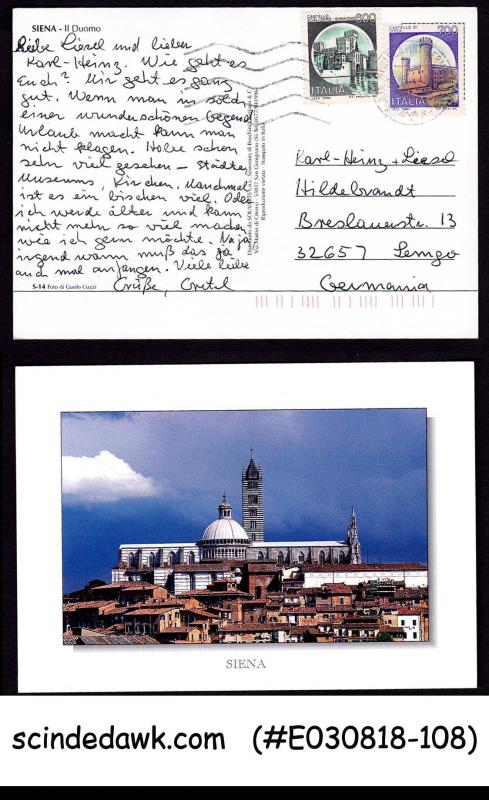 SIENA - Il Duomo
Liebe Liesel und lieber
Karl-Heinz. Wie geht es
Euch? Mir geht es ganz
gut. Wenn man in solch
einer wunderschönen Gegend
Urlaub macht kann man
nicht klagen. Habe schon
sehr viel gesehen - Städte,
Museums, Kirchen. Manchmal
ist es ein bischen viel. Oder
ich werde älter und kann
nicht mehr so viel machen
wie ich gern möchte. Na ja
irgend wann muß das ja
auch mal anfangen. Viele liebe
Grüße, Gretel
S-14 Foto di Guido Cozzi
300
ITALIA
CASTELLO DI
700
ITALIA
Karl-Heinz + Liesel
Hildebrandt
Breslauerstr. 13
32657 Lemgo
Germania
SIENA
scindedawk.com (#E030818-108)